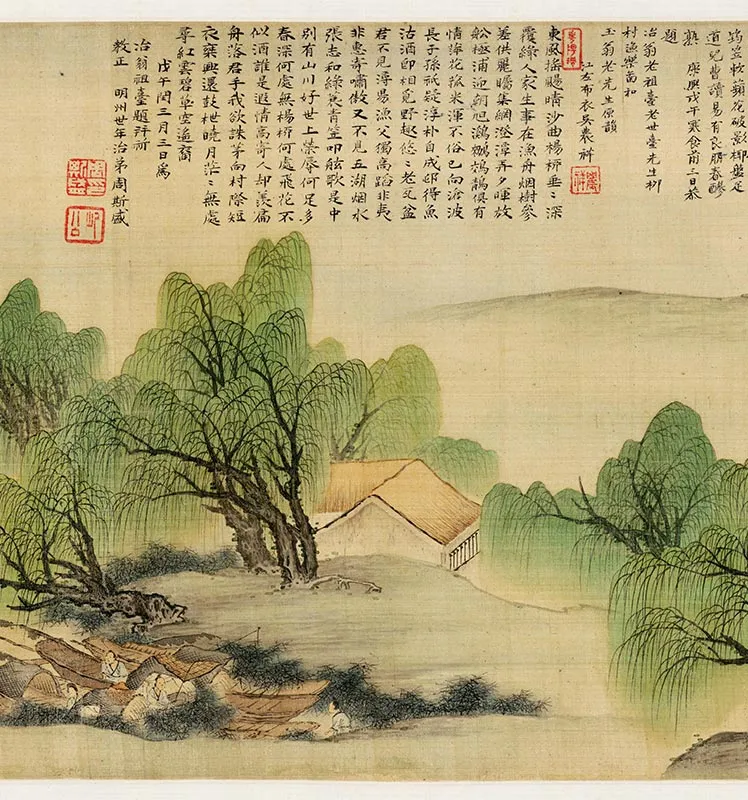 筠笠軟蘋花破影柳盤足
道兒曹讀易有良朋春醪
熟 康熙戊午寒食前三日恭
題
冶翁老祖臺老世臺先生柳
村漁樂圖和
玉翁老先生原韻
江左布衣吳農祥
農祥
東風搖颺晴沙曲楊柳垂〻深
覆綠人家生事在漁舟烟樹參
差供麗矚集網澄潭弄夕暉放
船極浦迎朝旭鸂鶒鵁鶄俱有
情蘋花菰米渾不俗已向滄波
長子孫祇疑淳朴自成邨得魚
沽酒即相覓野趣悠〻老瓦盆
君不見潯陽漁父獨高蹈非夷
非惠寄嘯傲又不見五湖烟水
張志和綠蓑青笠叩舷歌是中
別有山川好世上榮辱何足多
春深何處無楊柳何處飛花不
似酒誰是遐情高寄人却羨扁
舟落君手我欲誅茅向村際短
衣乘興還鼓枻曉月茫〻無處
尋紅雲碧草空遙裔
戊午閏三月三日爲
冶翁祖臺題并祈
教正 明州世年治弟周斯盛
周斯盛印
屺公